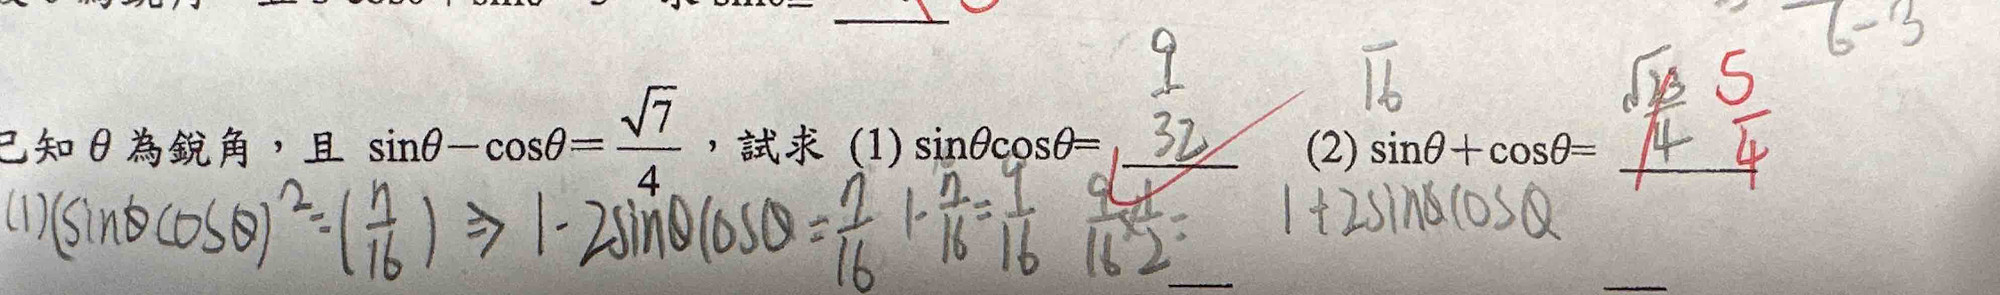 6-3
已知 θ 為銳角，且 sinθ−cosθ= √7/4 ，試求 (1) sinθcosθ= 9/32 (2) sinθ+cosθ= √23/4 5/4
16
(1)(sinθcosθ)²=(7/16) ⇒ 1-2sinθcosθ=7/16 1-7/16=9/16 9/16×1/2= 1+2sinθcosθ